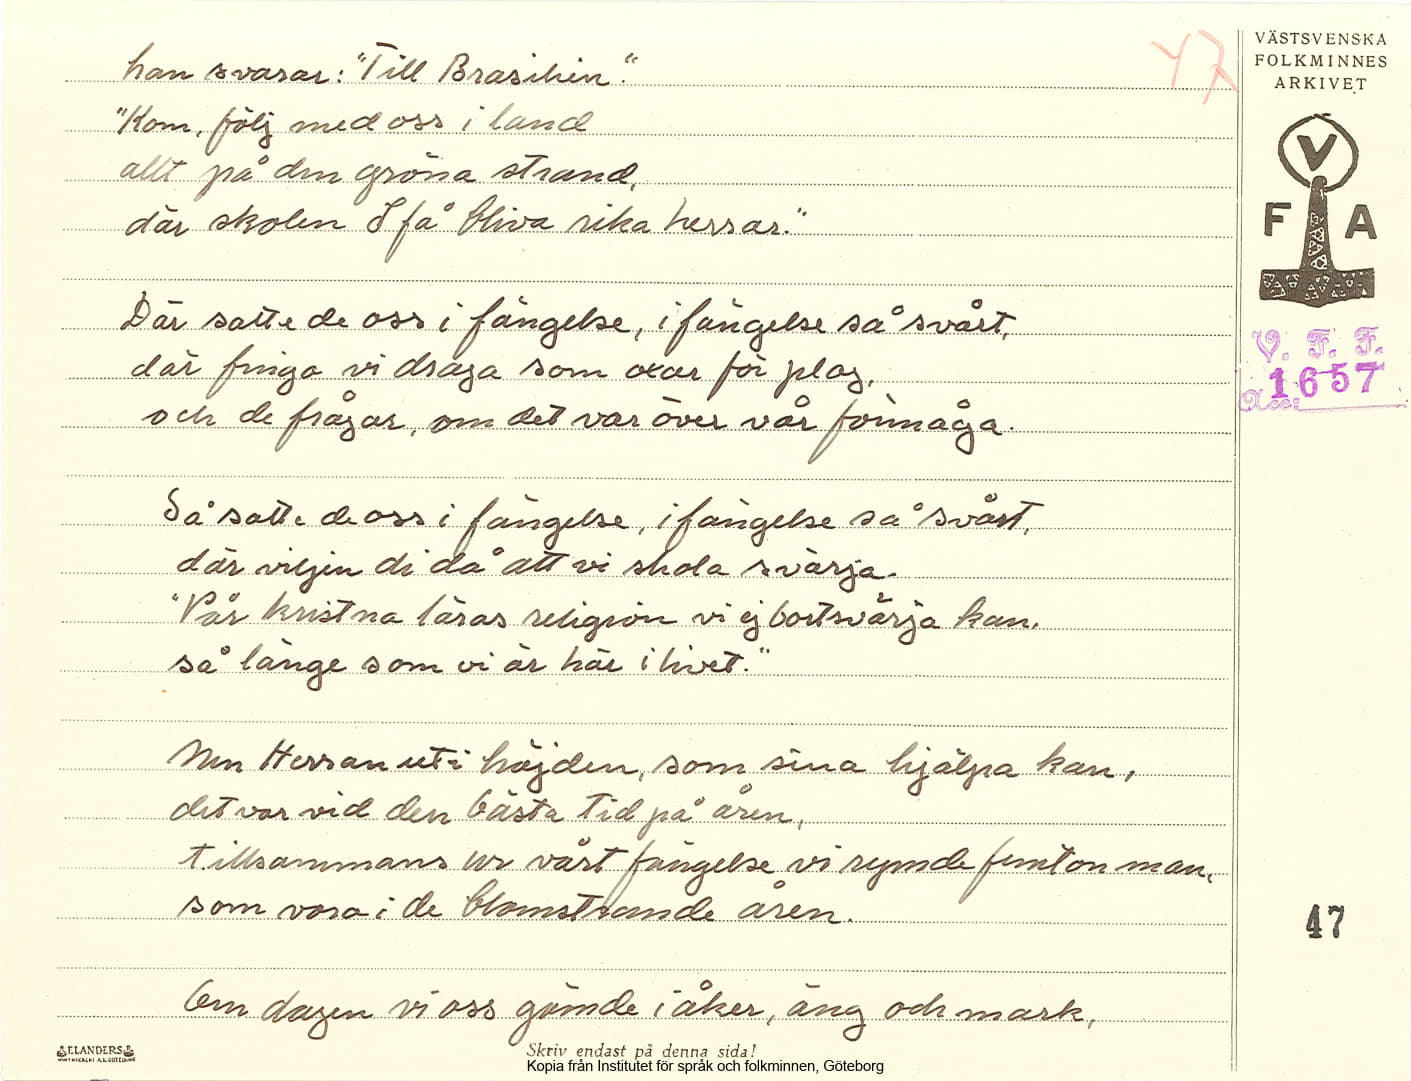 han svarar: "Till Brasilien".
"Kom, följ med oss i land
allt på den gröna strand,
där skolen I få bliva rika herrar."
Där satte de oss i fängelse, i fängelse så svårt,
där finga vi draga som oxar för plog,
och de frågar, om det var över vår förmåga.
Så satte de oss i fängelse, i fängelse så svårt,
där viljen di då att vi skola svärja.
"Vår kristna läras religion vi ej bortsvärja kan,
så länge som vi är här i livet."
Men Herran uti höjden, som sina hjälpa kan,
det var vid den bästa tid på åren,
tillsammans ur vårt fängelse vi rymde femton man,
som vora i de blomstrande åren.
Om dagen vi oss gömde i åker, äng och mark,
47
VÄSTSVENSKA
FOLKMINNES
ARKIVET
V
F A
V. F. F.
1657
Acc:
47
ELANDERS
Skriv endast på denna sida!
Kopia från Institutet för språk och folkminnen, Göteborg